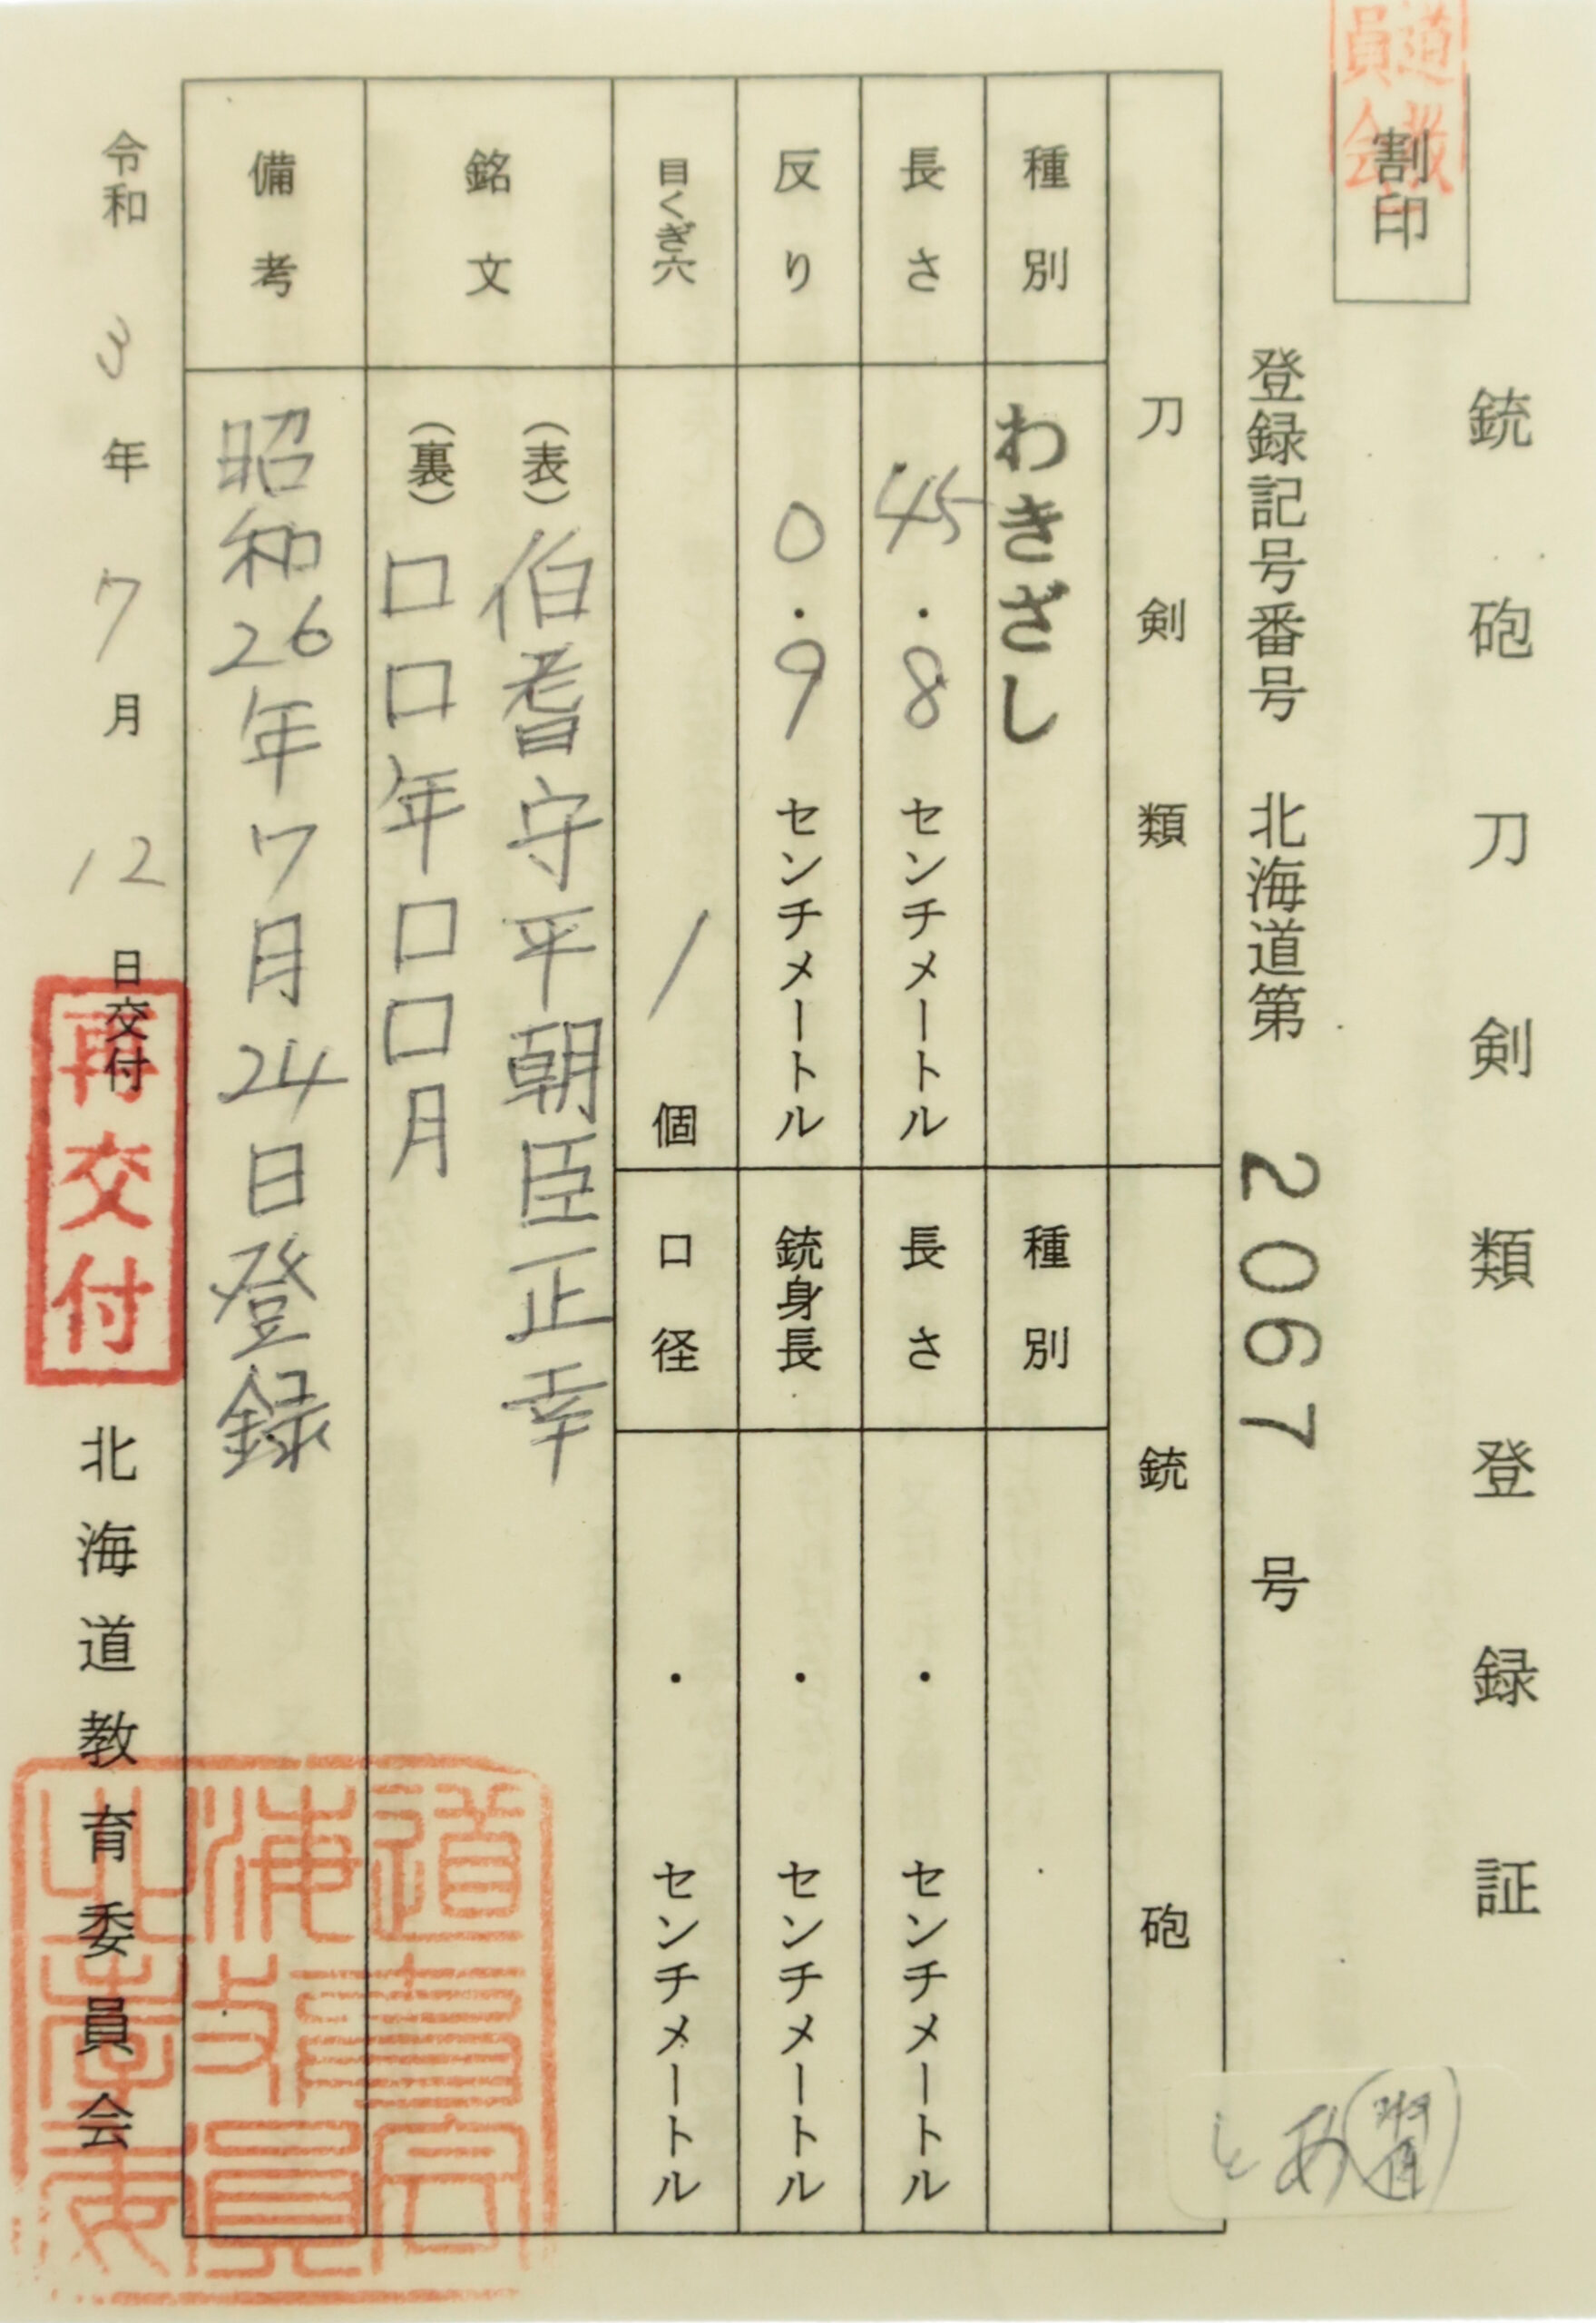 銃砲刀剣類登録証
割印
登録記号番号 北海道第 2067 号
刀剣類
種別 わきざし
長さ 45.8 センチメートル
反り 0.9 センチメートル
目くぎ穴 1 個
銃砲
種別
長さ ・ センチメートル
銃身長 ・ センチメートル
口径 ・ センチメートル
銘文
(表) 伯耆守平朝臣正幸
(裏) 口口年口口月
備考
昭和26年7月24日登録
令和 3 年 7 月 12 日交付
再交付
北海道教育委員会